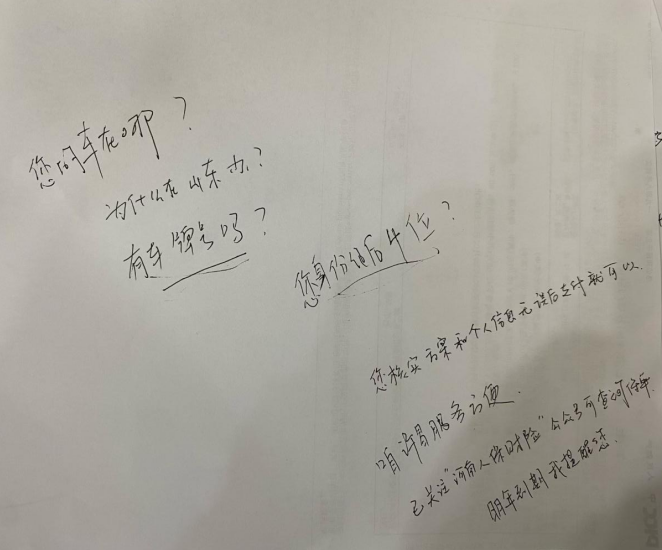 您的车在哪？
为什么在山东办？
有车牌号吗？
您身份证后4位？
您核实方案和个人信息无误后支付就可以.
咱许昌服务方便.
已关注"河南人保财险"公众号可查询保单.
明年到期我提醒您.